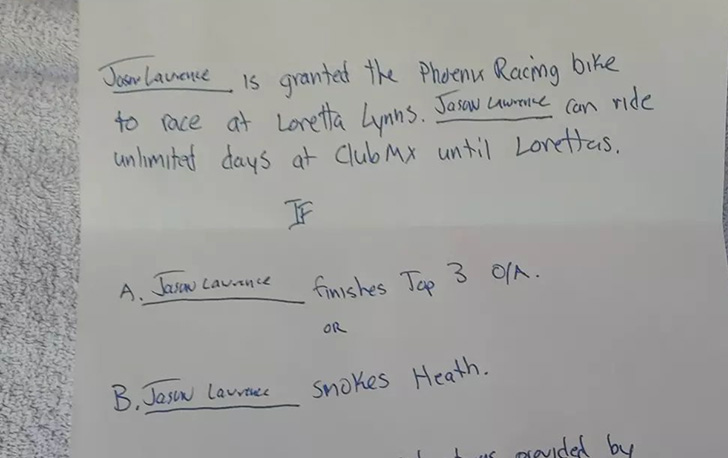 Jason Lawrence is granted the Phoenix Racing bike
to race at Loretta Lynns. Jason Lawrence can ride
unlimited days at Club Mx until Lorettas.
IF
A. Jason Lawrence finishes Top 3 O/A.
OR
B. Jason Lawrence smokes Heath.
provided by